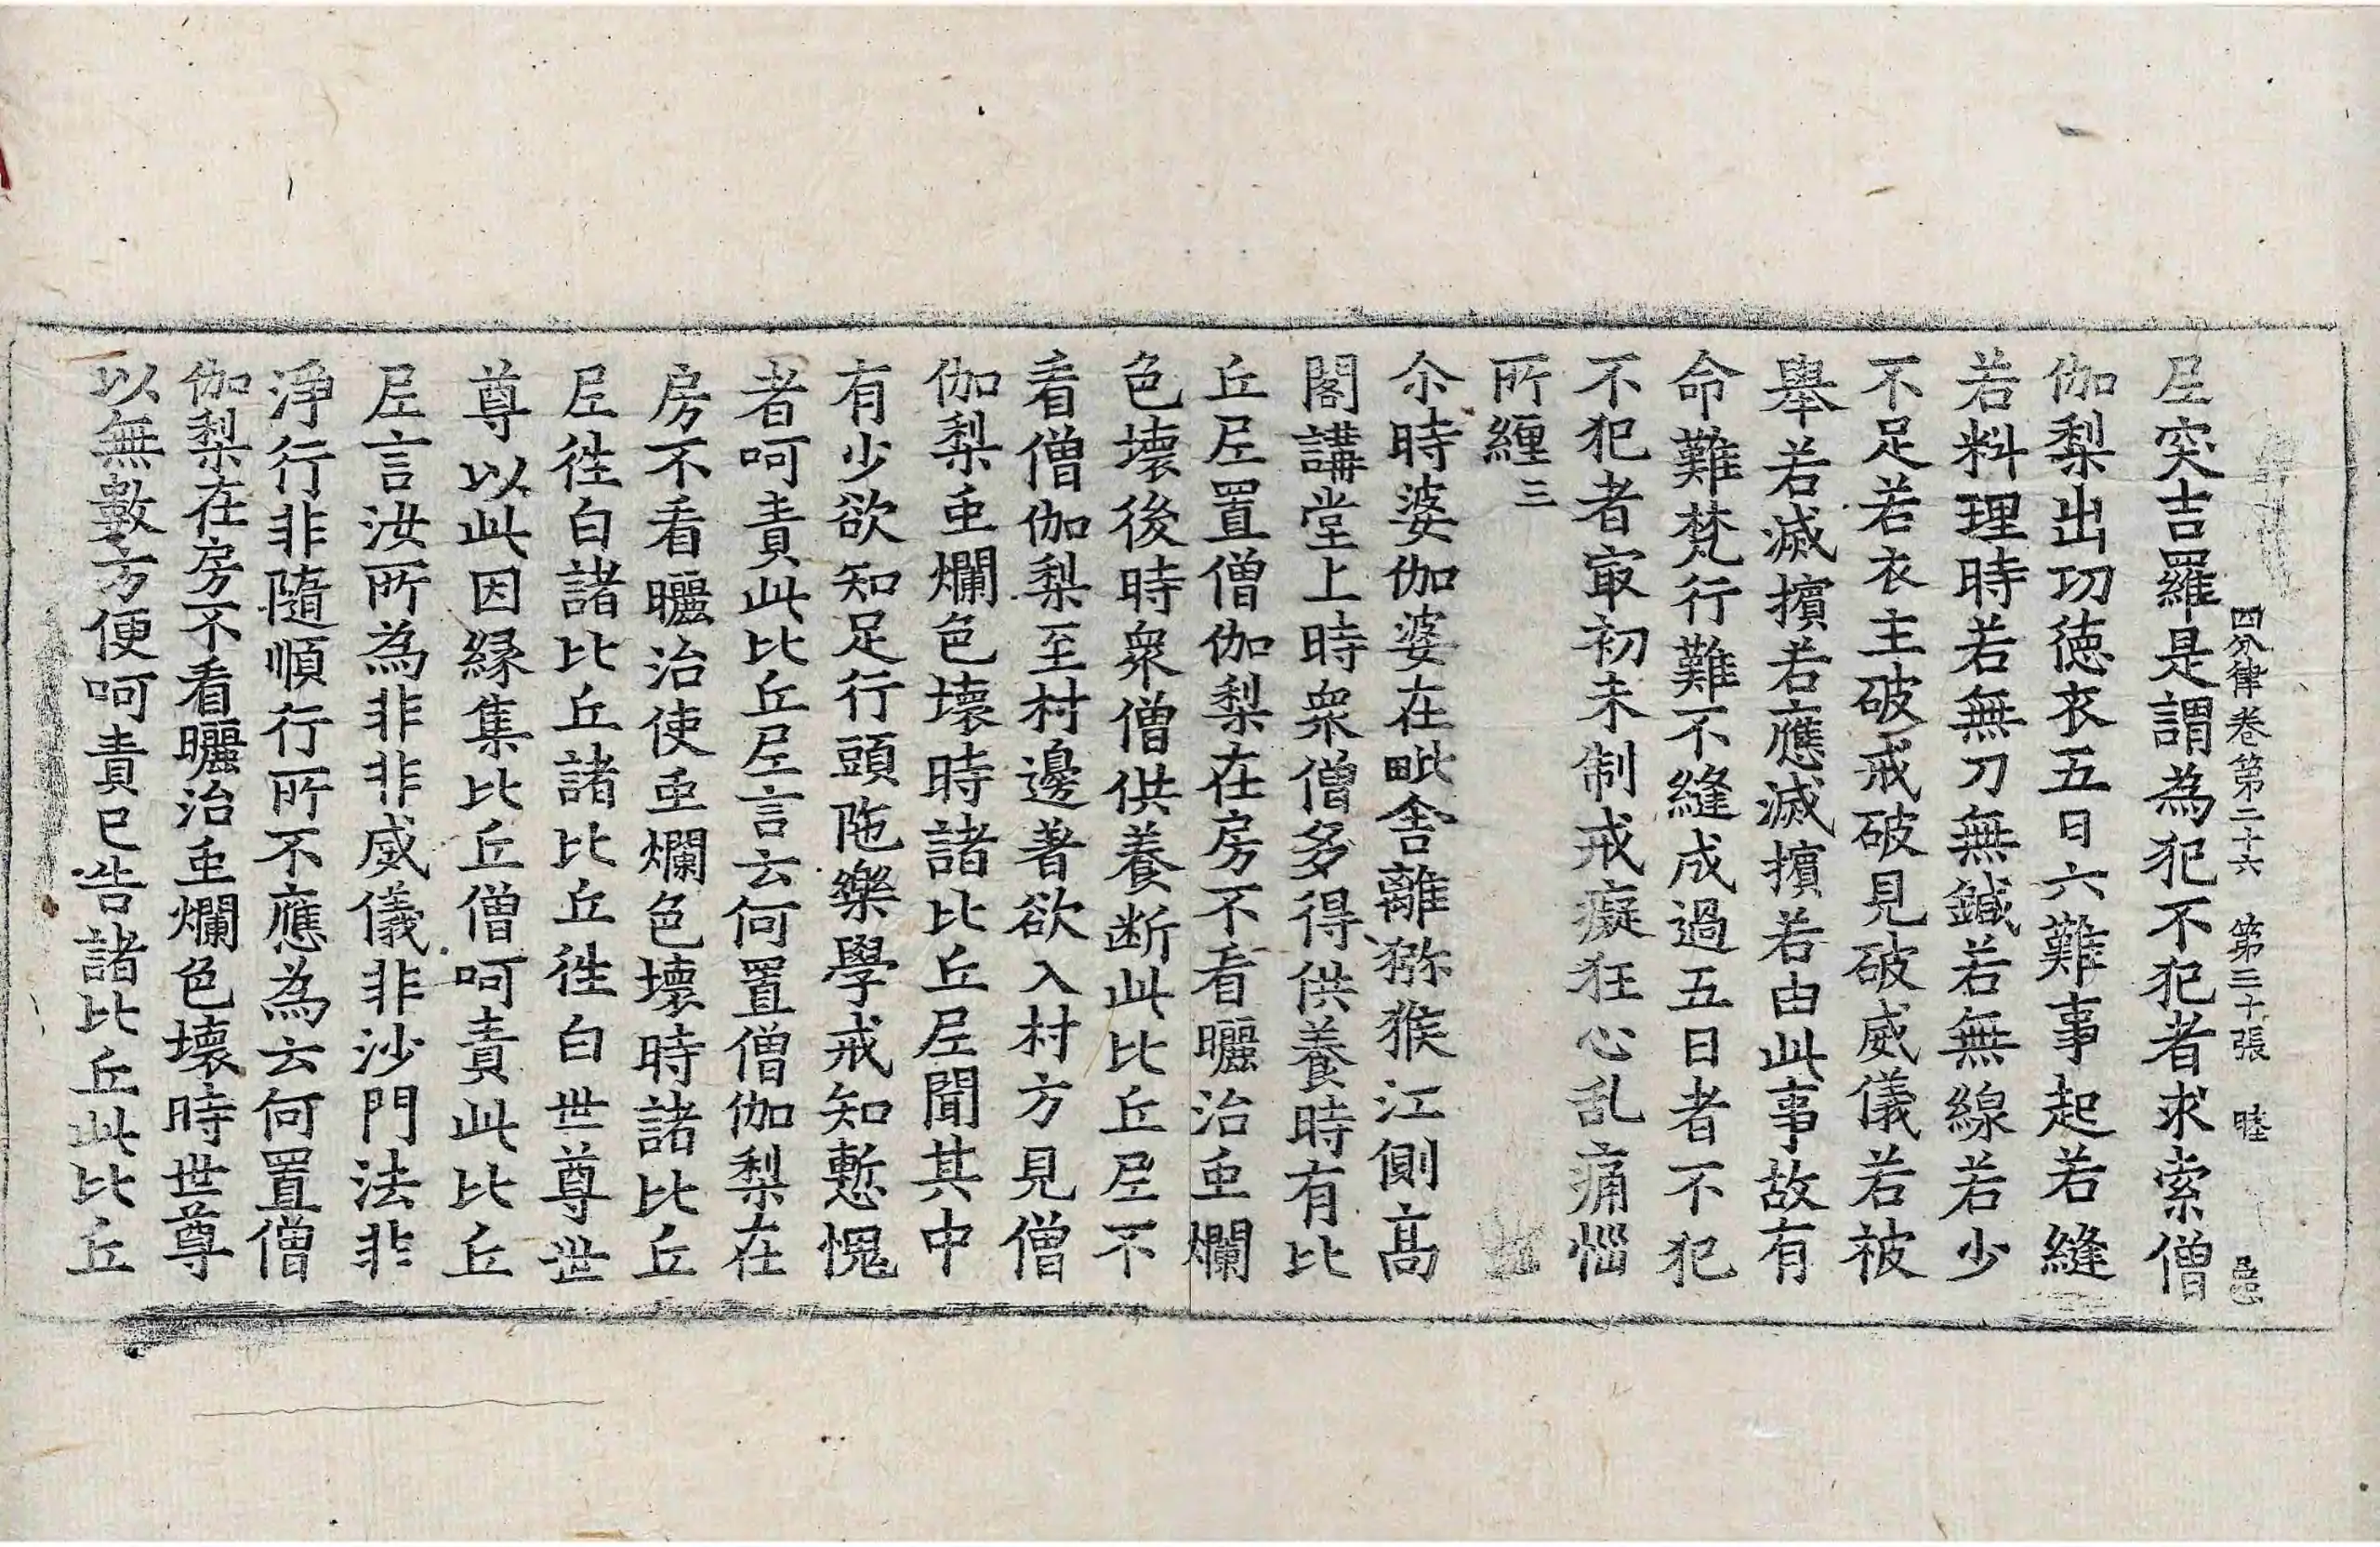 四分律卷第二十六 第三十張 睦
尼突吉羅是謂為犯不犯者求索僧
伽梨出功徳衣五日六難事起若縫
若料理時若無刀無鍼若無線若少
不足若衣主破戒破見破威儀若被
舉若滅擯若應滅擯若由此事故有
命難梵行難不縫成過五日者不犯
不犯者㝡初未制戒癡狂心乱痛惱
所纏三
尒時婆伽婆在毗舍離獼猴江側高
閣講堂上時衆僧多得供養時有比
丘尼置僧伽梨在房不看曬治虫爛
色壞後時衆僧供養断此比丘尼不
看僧伽梨至村邊著欲入村方見僧
伽梨虫爛色壞時諸比丘尼聞其中
有少欲知足行頭陁樂學戒知慙愧
者呵責此比丘尼言云何置僧伽梨在
房不看曬治使虫爛色壞時諸比丘
尼徃白諸比丘諸比丘徃白世尊世
尊以此因緣集比丘僧呵責此比丘
尼言汝所為非非威儀非沙門法非
淨行非隨順行所不應為云何置僧
伽梨在房不看曬治虫爛色壞時世尊
以無數方便呵責已告諸比丘此比丘